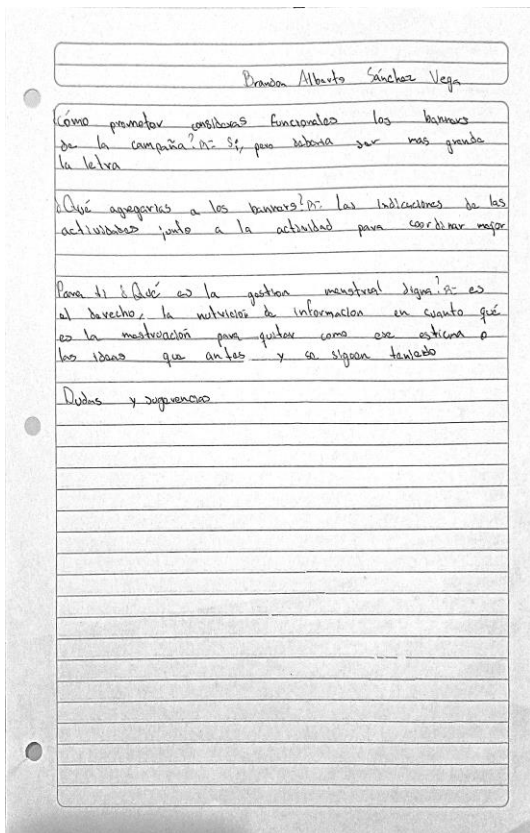 Brandon Alberto Sánchez Vega
Cómo promotor consideras funcionales los banners
de la campaña? R= Si, pero deberia ser mas grande
la letra
¿Qué agregarias a los banners? R= las indicaciones de las
actividades junto a la actividad para coordinar mejor
Para ti ¿Qué es la gestion menstrual digna? R= es
el derecho, la nutricion de informacion en cuanto qué
es la mestruación para quitar como ese estigma o
las ideas que antes y se siguen teniedo
Dudas y sugerencias